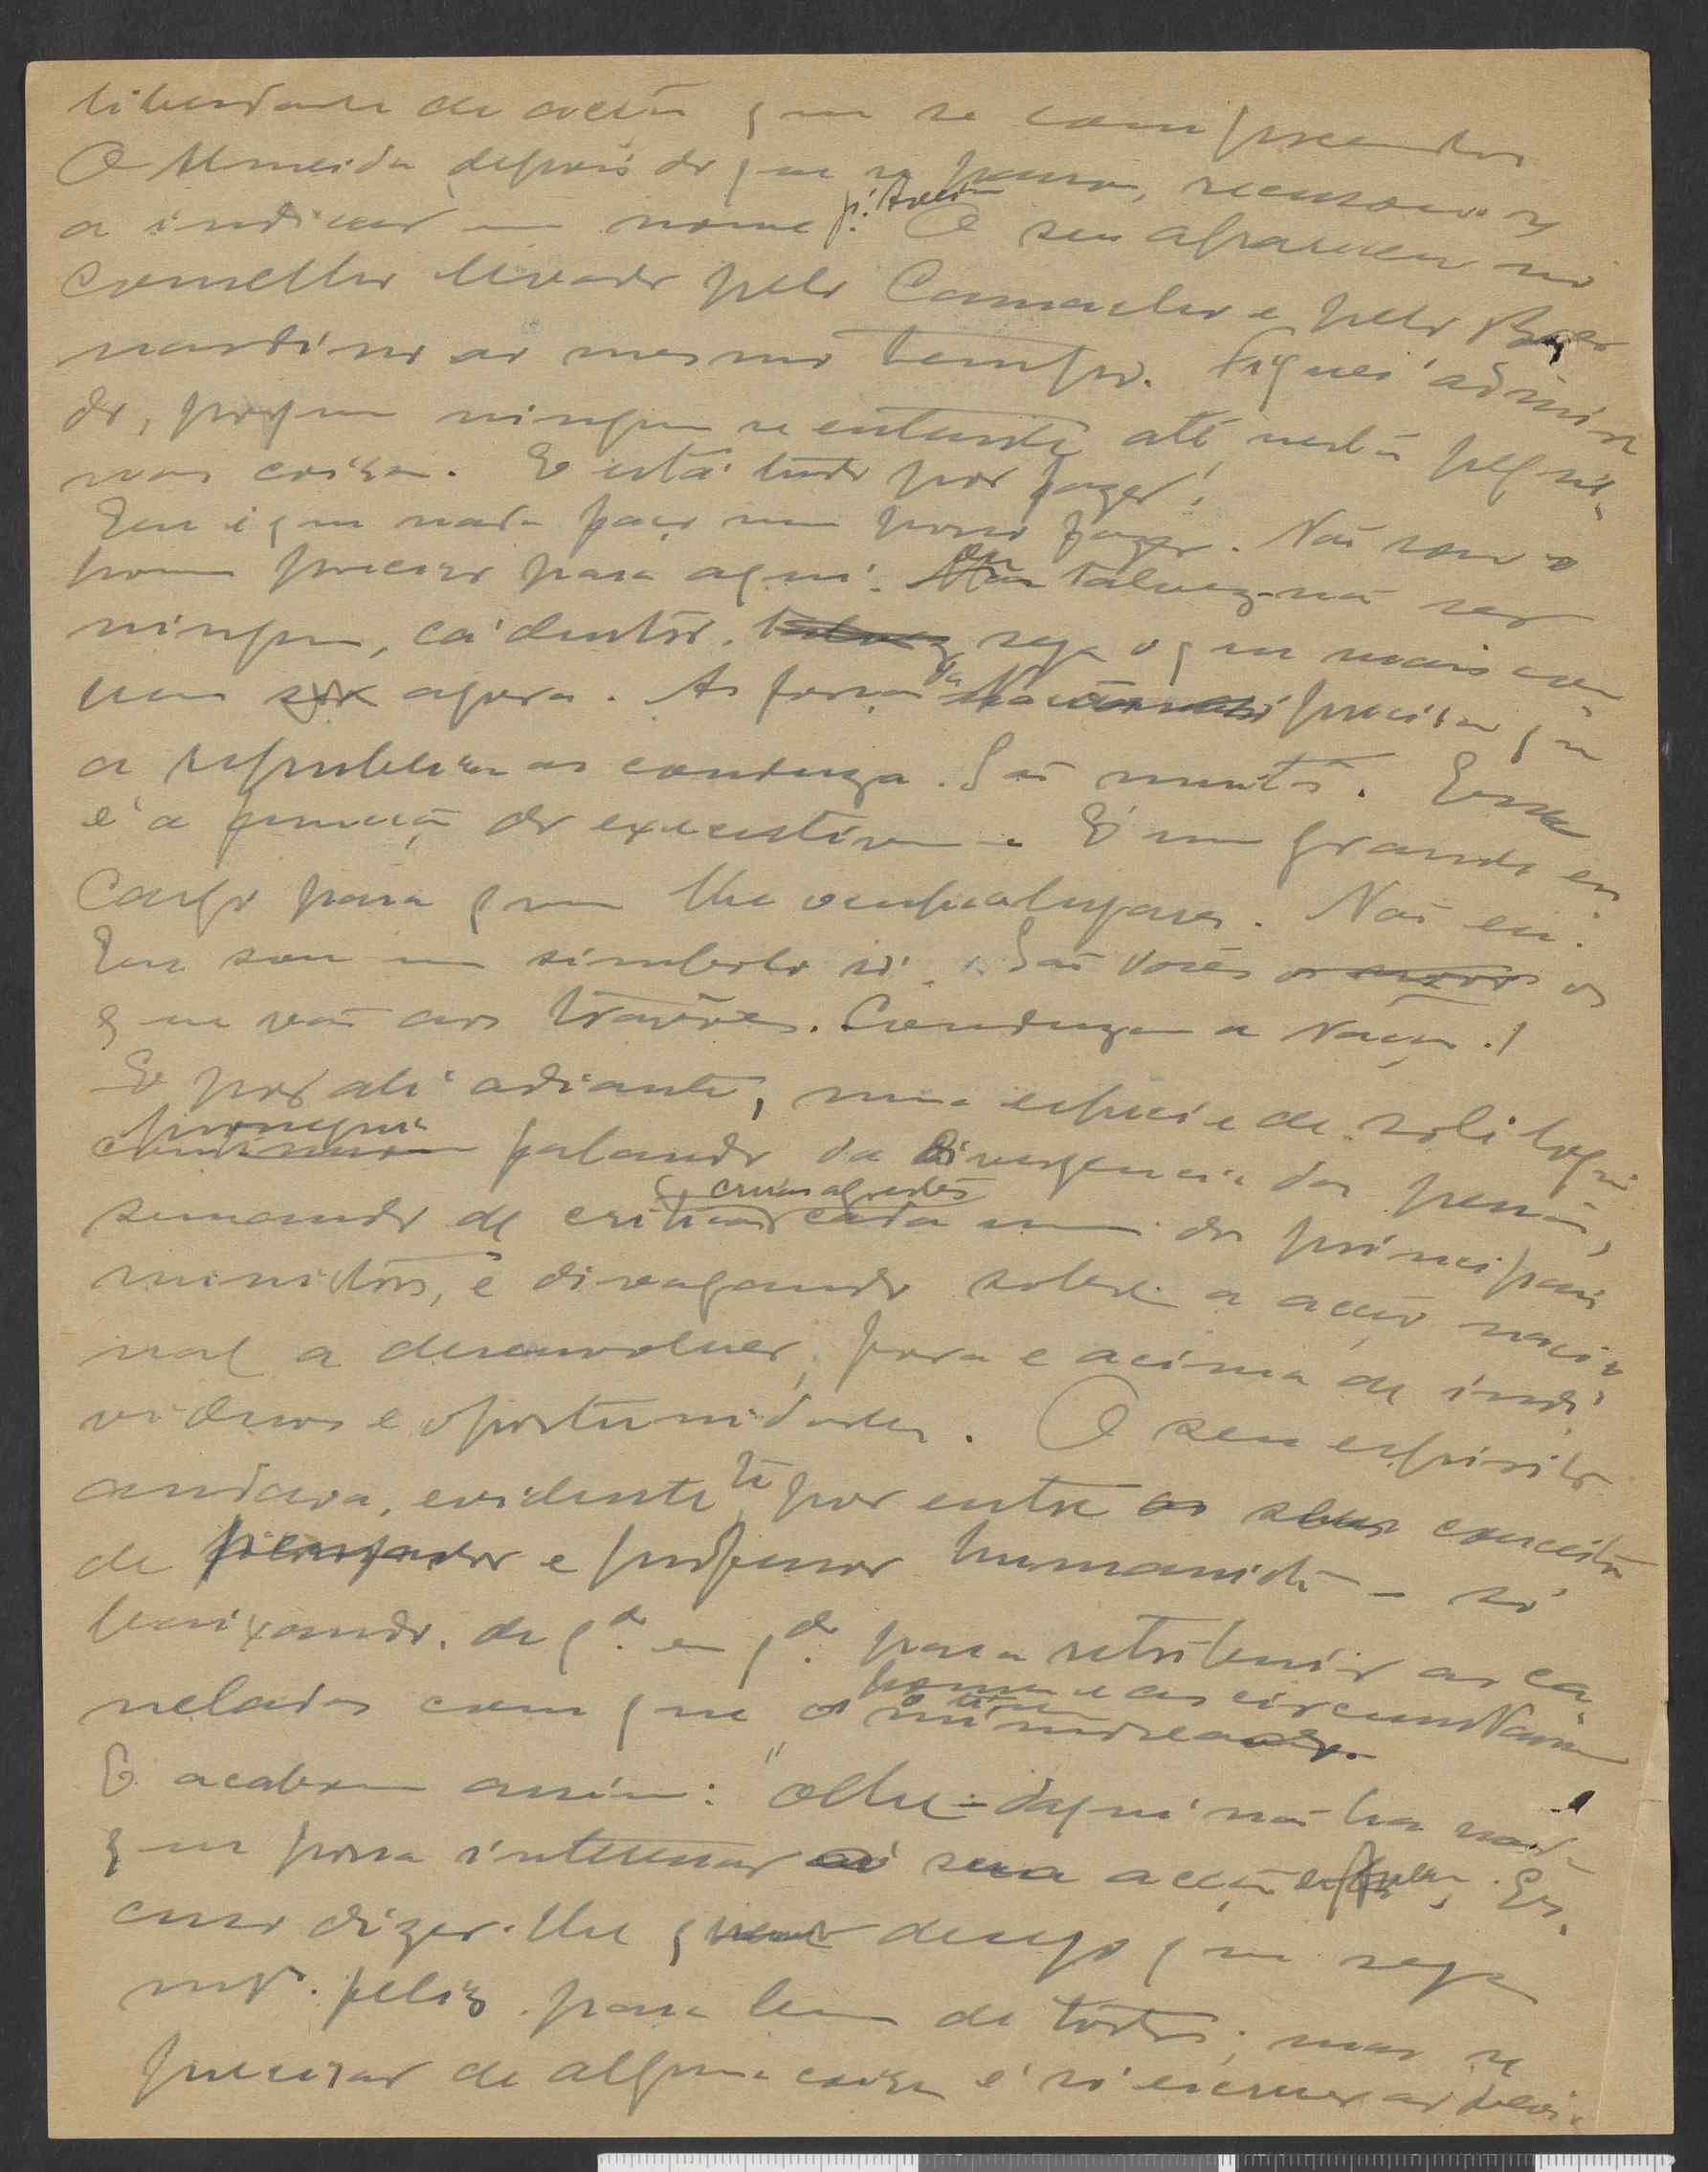 liberdade de acção que se comprehende.
O Almeida, depois do que se passou, recusou-se
a indicar um nome p.ª Aveiro. O seu appareceu no
conselho levado pelo Camacho e pelo Ber
nardino ao mesmo tempo. Fiquei admira
do, porque ninguem se entende, até nestas peque-
nas coisas. E está tudo por fazer!
Eu é que nada faço nem posso fazer. Não sou o
homem preciso para aqui. Ou talvez não sei
ninguem, cá dentro. seja o que mais con
vem agora. As forças da Nação precisam que
a republica as conduza. São muitas. Essa
é a funcção do executivo. É um grande en
cargo para quem lhe occupa logares. Não eu.
Eu sou um simbolo só. São vocês os
que vão aos travões. Conduzam a Nação!
E por ali adiante, numa especie de soliloquio
proseguia falando da divergencia das pessoas,
semeando de criticas cada um dos principaes
ministros, e divagando sobre a acção nacio
nal a desenvolver, fora e acima de indi-
viduos e oportunidades. O seu espirito
andava, evidente.te por entre os seus conceitos
de pensador e professor humanista – só
baixando, de q.do em q.do para retribuir as ca-
neladas com que os homens e as circunstancias
o
E acabou assim: "Olhe – daqui não ha nada
que possa interessar á sua acção. Es-
cuso dizer-lhe que desejo que seja
mt.º feliz para bem de todos; mas se
precisar de alguma coisa é só escrever ao